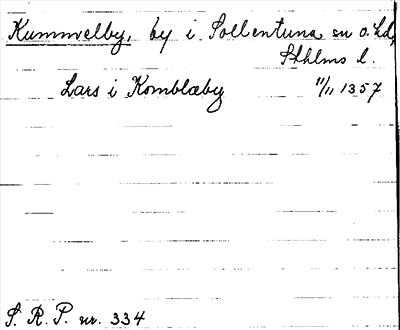 Kummelby, by i Sollentuna sn o. hd,
Sthlms l.
Lars i Komblæby 11/11 1357
S. R. P. nr. 334